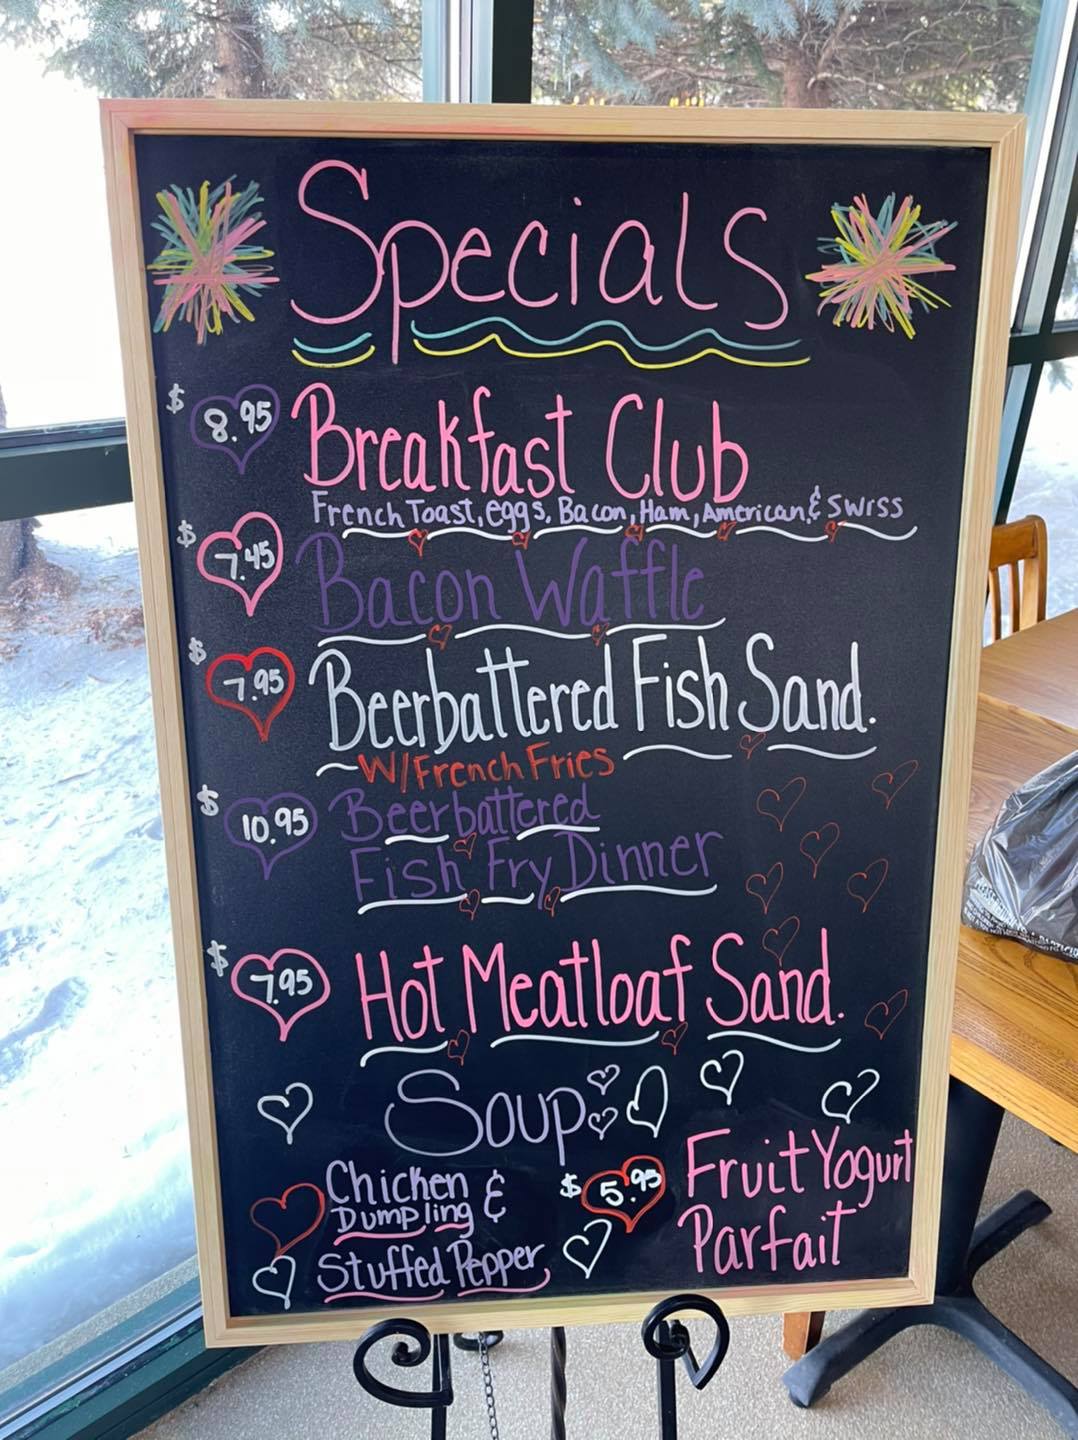 Specials
$ 8.95 Breakfast Club
French Toast, eggs, Bacon, Ham, American, & Swiss
$ 7.45 Bacon Waffle
$ 7.95 Beerbattered Fish Sand.
W/French Fries
$ 10.95 Beerbattered
Fish Fry Dinner
$ 7.95 Hot Meatloaf Sand.
Soup
Chicken &
Dumpling
Stuffed Pepper
$ 5.95 Fruit Yogurt
Parfait